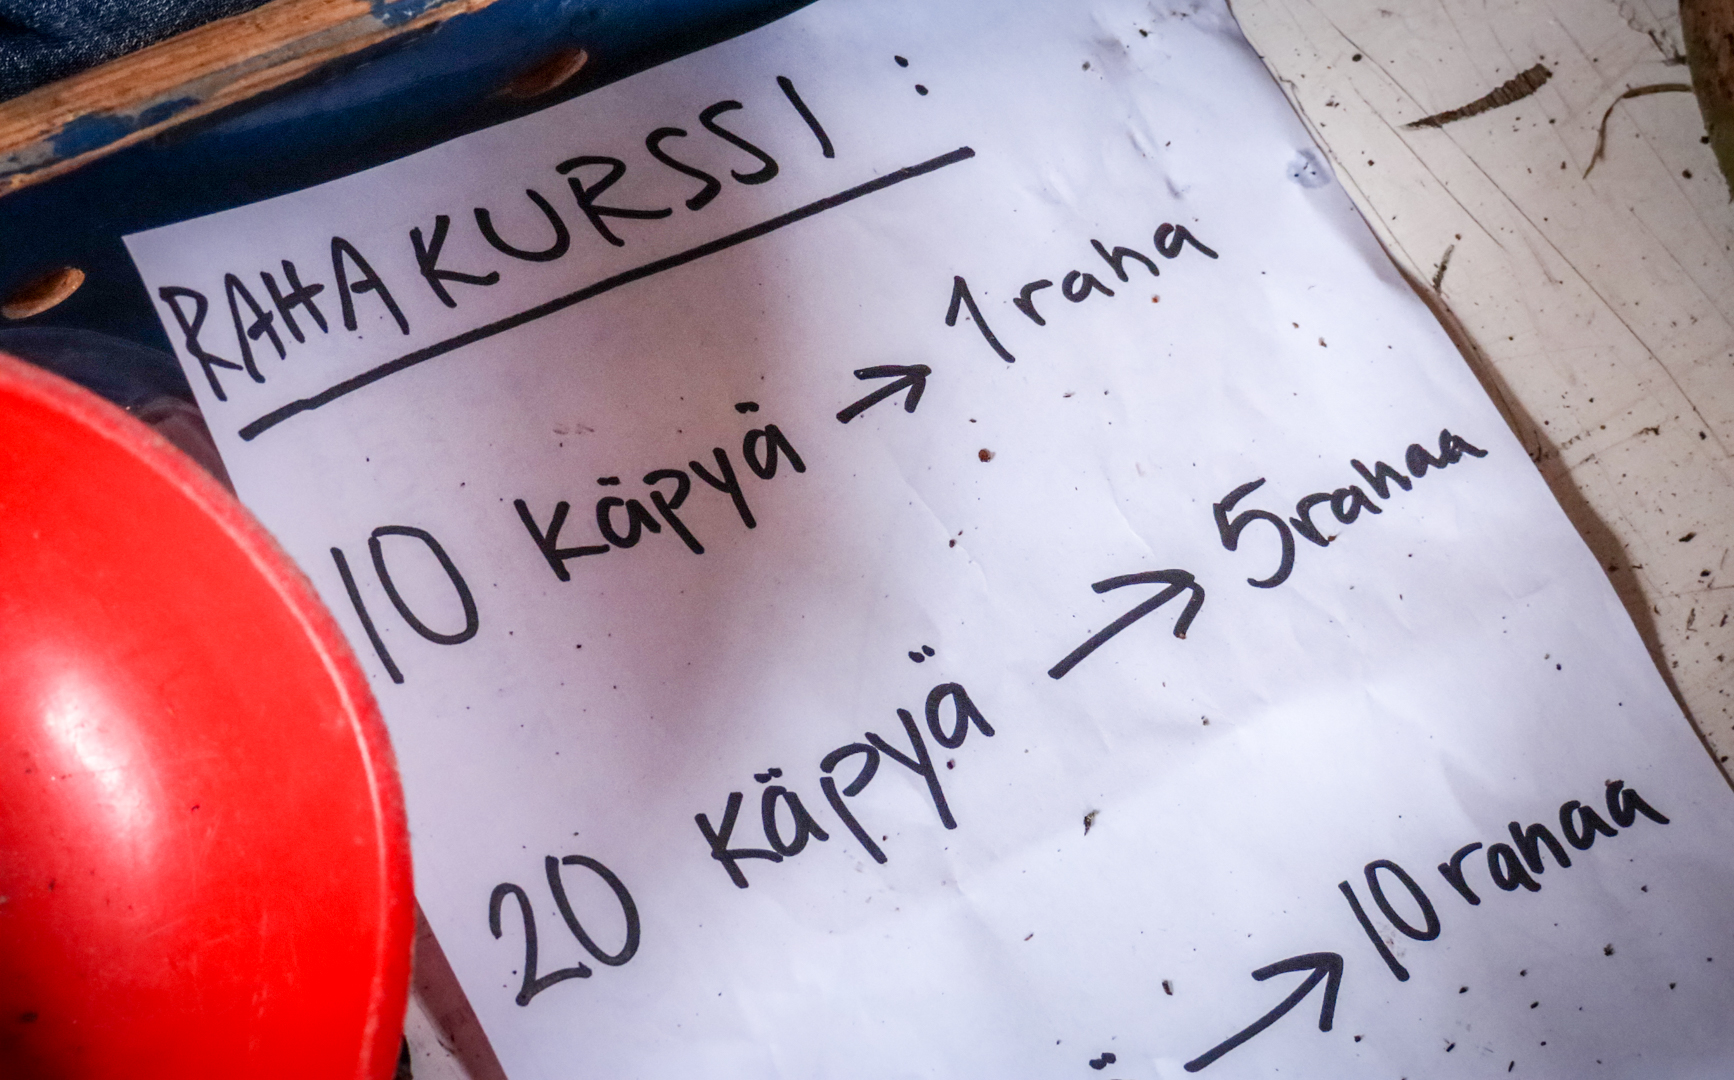 RAHAKURSSI:
10 käpyä → 1 raha
20 käpyä → 5 rahaa
→ 10 rahaa